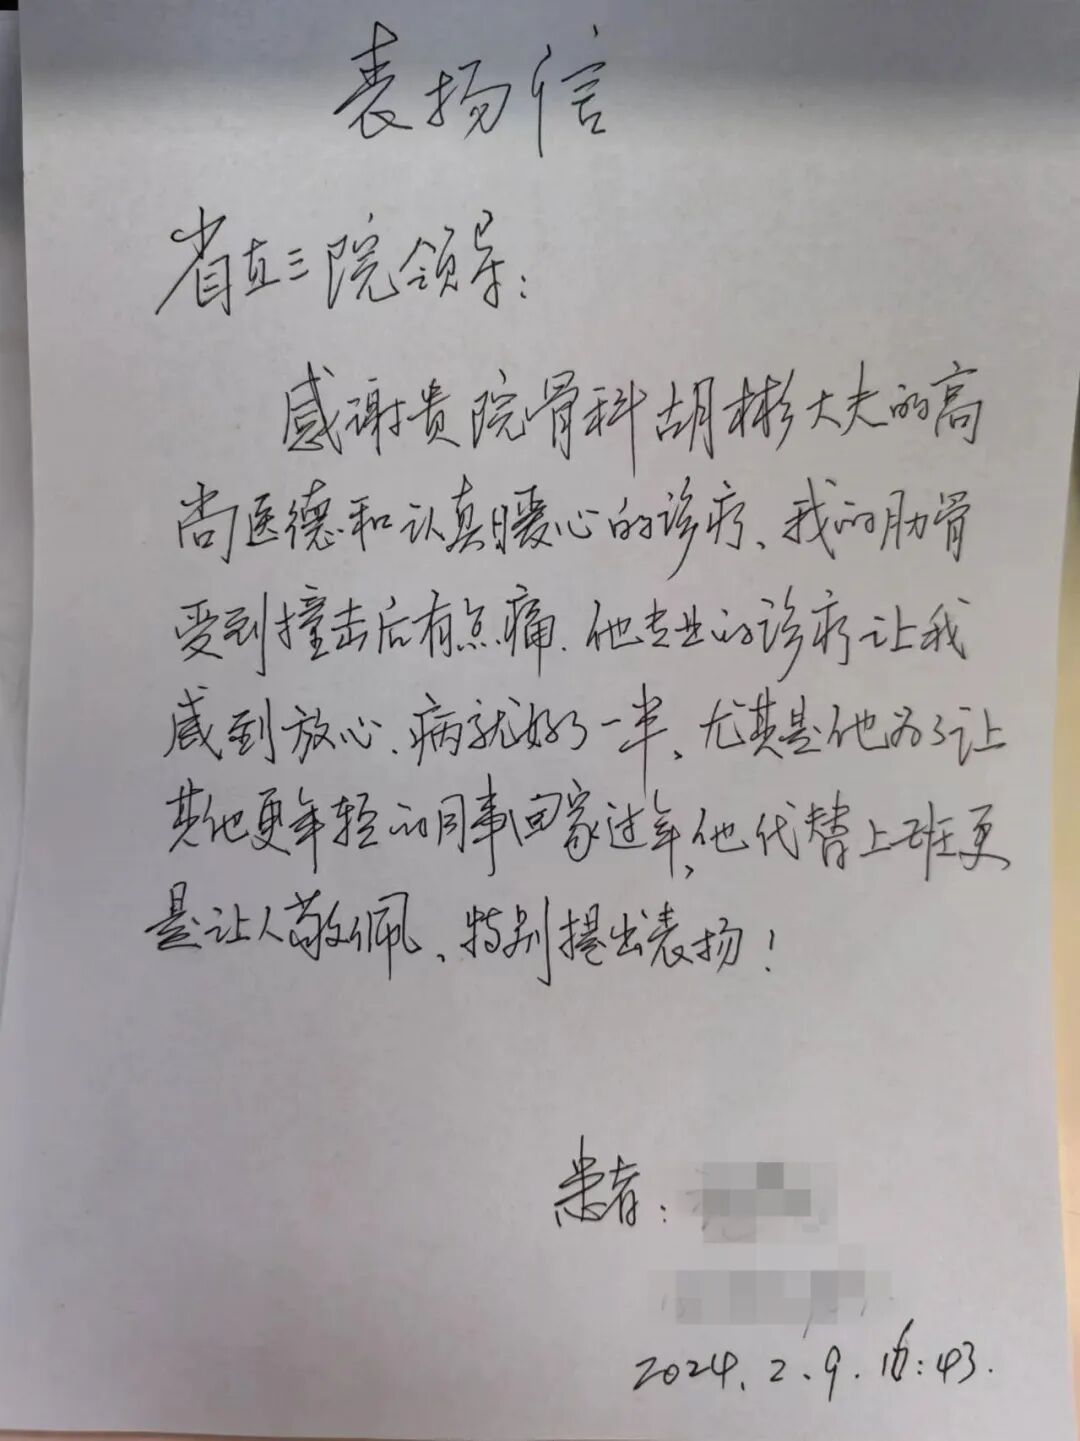 表扬信
省直三院领导：
感谢贵院骨科胡彬大夫的高
尚医德和认真暖心的诊疗、我的肋骨
受到撞击后有点痛.他专业的诊疗让我
感到放心.病就好了一半、尤其是他为了让
其他更年轻的同事回家过年,他代替上班更
是让人敬佩、特别提出表扬！
患者：
2024.2.9.16:43.